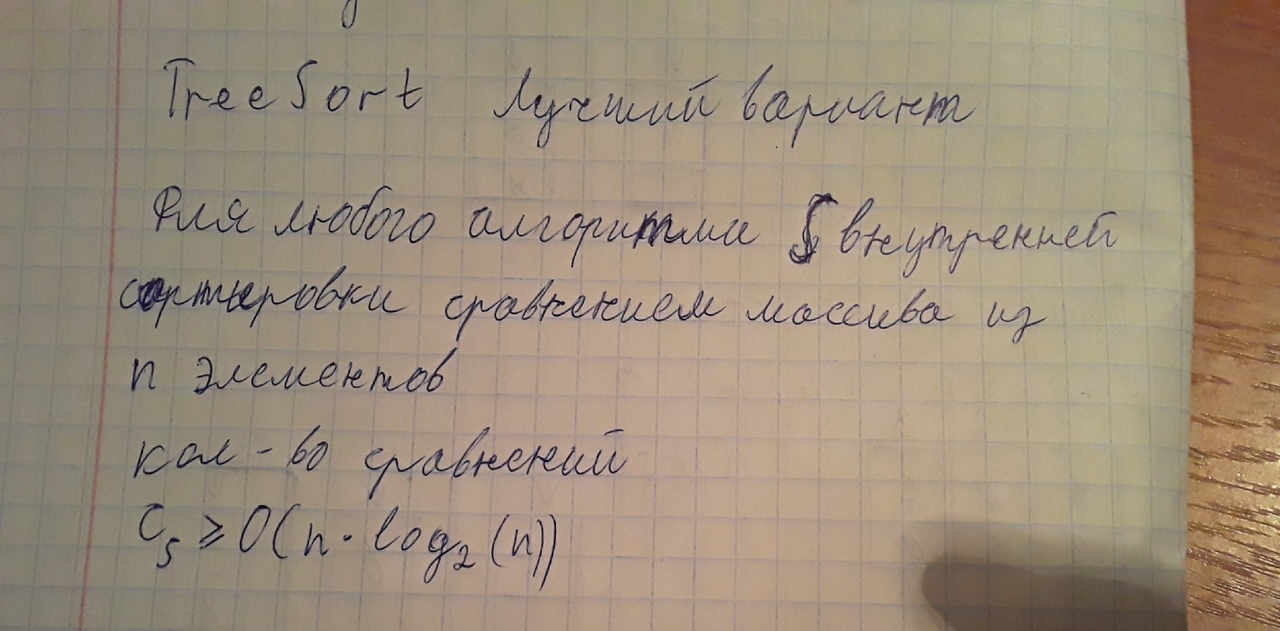 TreeSort Лучший вариант
Для любого алгоритма S внутренней
сортировки сравнением массива из
n элементов
кол-во сравнений
C_S ≥ O(n · log₂(n))